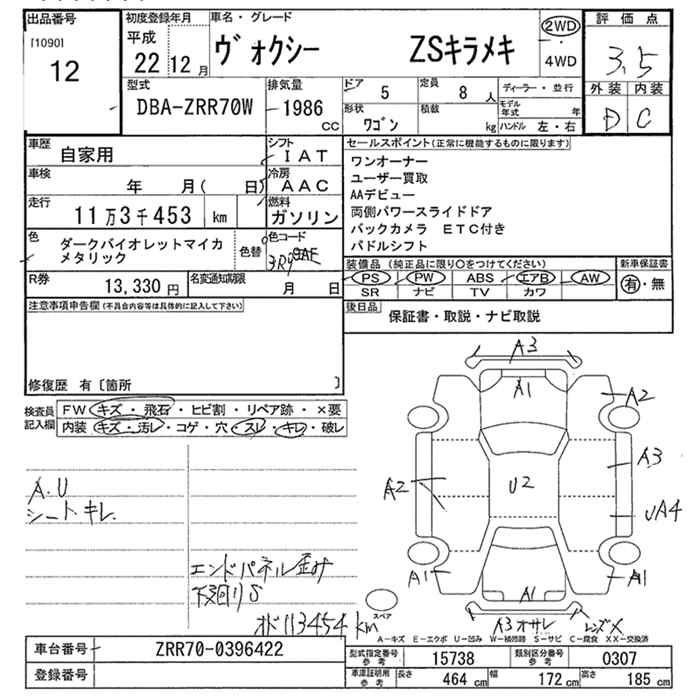 出品番号
[1090]
12
初度登録年月
平成
22 12 月
車名・グレード
ヴォクシー ZSキラメキ
2WD
・
4WD
評価点
3.5
外装 内装
D C
型式
DBA-ZRR70W
排気量
1986
CC
ドア 5
定員 8 人
形状
ワゴン
積載
kg
ディーラー・並行
モデル年式 年
ハンドル 左・右
車歴
自家用
車検
年 月( 日)
走行
11万3千453 km
色
ダークバイオレットマイカ
メタリック
色替
シフト
IAT
冷房
AAC
燃料
ガソリン
色コード
3R9
R券
13,330 円
名変通知期限
月 日
セールスポイント(正常に機能するものに限ります)
ワンオーナー
ユーザー買取
AAデビュー
両側パワースライドドア
バックカメラ ETC付き
パドルシフト
装備品(純正品に限り〇をつけてください)
PS PW ABS エアB AW
SR ナビ TV カワ
新車保証書
有・無
後日品
保証書・取説・ナビ取説
注意事項申告欄(不具合内容等は具体的に記入して下さい)
修復歴 有〔箇所 〕
検査員
記入欄
FW キズ・飛石・ヒビ割・リペア跡・×要
内装 キズ・汚レ・コゲ・穴・スレ・キレ・破レ
A.U
シートキレ
エンドパネル歪み
下廻りS
オド113454km
A3
A1
A2
A3
U2
A2
UA4
A1
A1
A1
スペア
A3オサレ
レンズX
A-キズ E-エクボ U-凹み W-補修跡 S-サビ C-腐食 XX-交換済
車台番号
ZRR70-0396422
登録番号
型式指定番号
参考
15738
類別区分番号
参考
0307
車庫証明用
参考
長さ 464 cm
幅 172 cm
高さ 185 cm